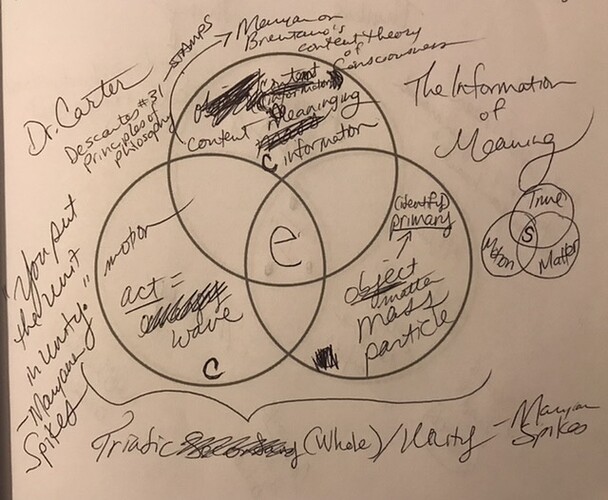 Dr. Carter
Descartes #31
Principles of
philosophy
STAMPS
Maryan on
Brentano's
content theory
of
Consciousness
The Information
of
Meaning
Content
information
meaninging
content
C information
motion
act =
wave
C
e
(identify)
primary
object
matter
mass
particle
Time
S
Motion
Matter
"You put
the unit
in Unity."
- Maryane
Spikes
Triadic (Whole) / Unity - Maryan
Spikes